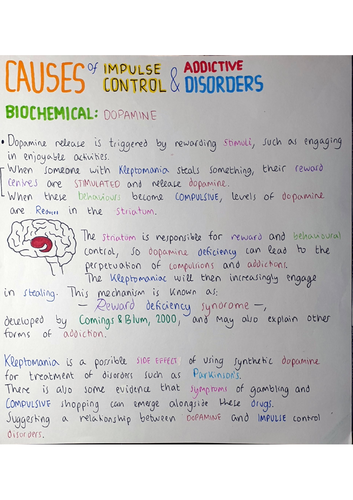 CAUSES OF IMPULSE CONTROL & ADDICTIVE DISORDERS
BIOCHEMICAL: DOPAMINE
• Dopamine release is triggered by rewarding stimuli, such as engaging
in enjoyable activities.
When someone with Kleptomania steals something, their reward
centres are STIMULATED and release dopamine.
When these behaviours become COMPULSIVE, levels of dopamine
are in the Striatum.
The Striatum is responsible for reward and behavioural
control, so dopamine deficiency can lead to the
perpetuation of compulsions and addictions.
The Kleptomaniac will then increasingly engage
in stealing. This mechanism is known as:
Reward deficiency synorome –,
developed by Comings & Blum, 2000, and may also explain other
forms of addiction.
Kleptomania is a possible SIDE EFFECT of using synthetic dopamine
for treatment of disorders such as Parkinson's.
There is also some evidence that symptoms of gambling and
COMPULSIVE shopping can emerge alongside these drugs.
Suggesting a relationship between DOPAMINE and IMPULSE control
disorders.